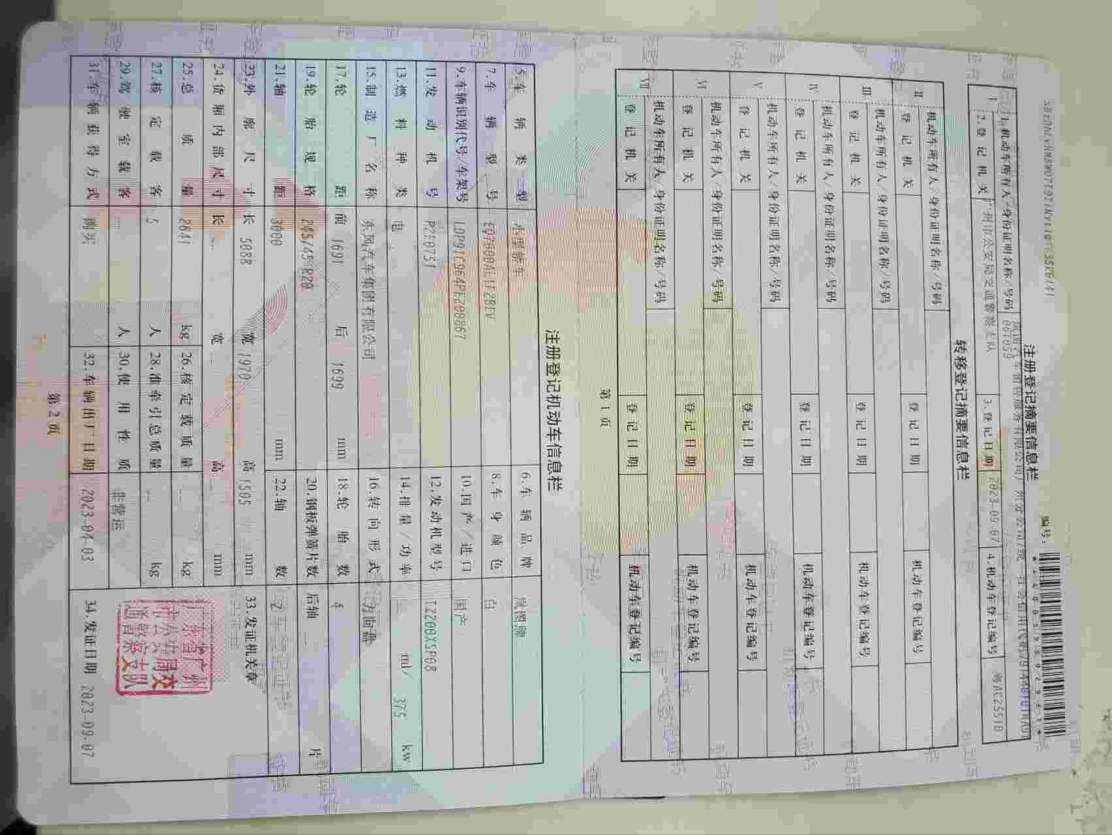 编号：
注册登记摘要信息栏
1.机动车所有人/身份证明名称/号码
2.登记机关
广州市公安局交通警察支队
3.登记日期
2023-09-07
4.机动车登记编号
转移登记摘要信息栏
II
机动车所有人/身份证明名称/号码
登记机关
登记日期
机动车登记编号
III
机动车所有人/身份证明名称/号码
登记机关
登记日期
机动车登记编号
IV
机动车所有人/身份证明名称/号码
登记机关
登记日期
机动车登记编号
V
机动车所有人/身份证明名称/号码
登记机关
登记日期
机动车登记编号
VI
机动车所有人/身份证明名称/号码
登记机关
登记日期
机动车登记编号
VII
机动车所有人/身份证明名称/号码
登记机关
登记日期
机动车登记编号
第1页
注册登记机动车信息栏
5.车辆类型 小型轿车 6.车辆品牌 岚图牌
7.车辆型号 8.车身颜色 白
9.车辆识别代号/车架号 10.国产/进口 国产
11.发动机号 12.发动机型号 TZ200XSP68
13.燃料种类 电 14.排量/功率 ml/ 375 kw
15.制造厂名称 东风汽车集团有限公司 16.转向形式 方向盘
17.轮距 前 1691 后 1699 mm 18.轮胎数 4
19.轮胎规格 245/45 R20 20.钢板弹簧片数 后轴 片
21.轴距 3000 mm 22.轴数 2
23.外廓尺寸 长 5088 宽 1970 高 1505 mm 33.发证机关章
24.货厢内部尺寸 长 宽 高 mm
25.总质量 2841 kg 26.核定载质量 kg
27.核定载客 5 人 28.准牵引总质量 kg
29.驾驶室载客 人 30.使用性质 非营运
31.车辆获得方式 购买 32.车辆出厂日期 2023-04-03 34.发证日期 2023-09-07
第2页